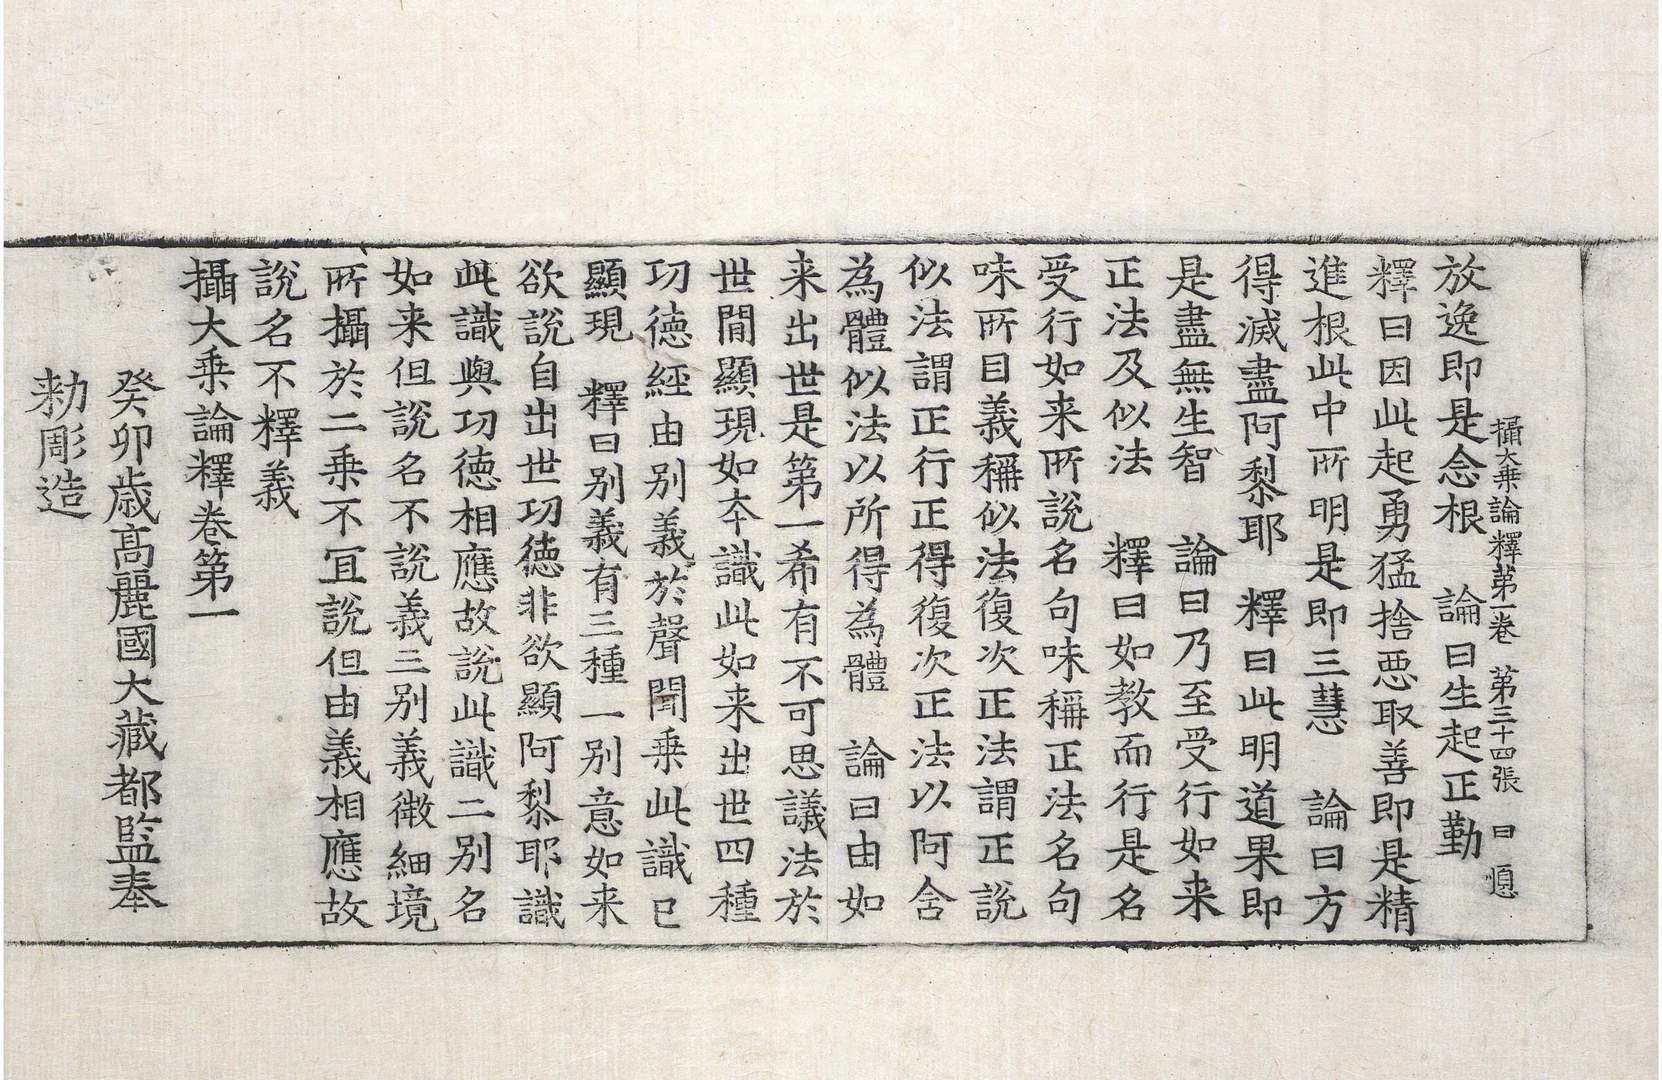 攝大乗論釋第一卷　第三十四張　曰　㥧
放逸即是念根　論曰生起正勤
釋曰因此起勇猛捨惡取善即是精
進根此中所明是即三慧　論曰方
得滅盡阿梨耶　釋曰此明道果即
是盡無生智　論曰乃至受行如来
正法及似法　釋曰如教而行是名
受行如来所說名句味稱正法名句
味所目義稱似法復次正法謂正說
似法謂正行正得復次正法以阿含
為體似法以所得為體　論曰由如
来出世是第一希有不可思議法於
世間顯現如夲識此如来出世四種
功德經由别義於聲聞乗此識已
顯現　釋曰别義有三種一别意如来
欲說自出世功德非欲顯阿梨耶識
此識與功德相應故說此識二别名
如来但說名不說義三别義微細境
所攝於二乗不冝說但由義相應故
說名不釋義
攝大乗論釋卷第一
癸卯歳高麗國大藏都監奉
勅彫造